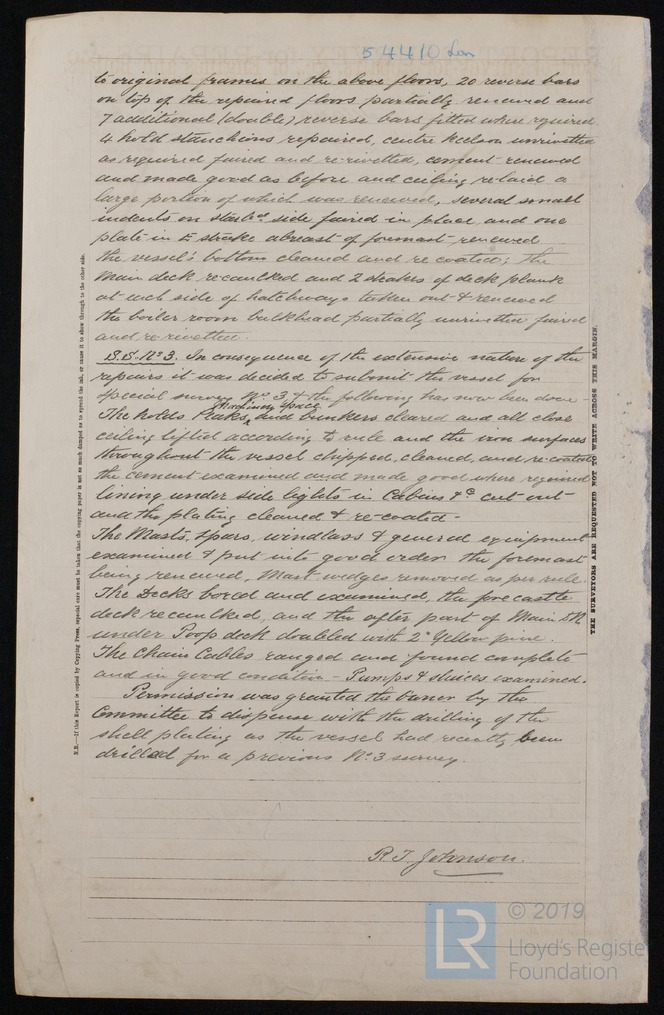 54410 Lon
to original frames on the above floors, 20 reverse bars
on top of the repaired floors partially renewed and
7 additional (double) reverse bars fitted where required
4 hold stanchions repaired, centre keelson unrivetted
as required faired and re-rivetted, cement renewed
and made good as before and ceiling relaid a
large portion of which was renewed, several small
indents on starbd side faired in place and one
plate in E strake abreast of foremast renewed
the vessel's bottom cleaned and re coated; the
Main deck re-caulked and 2 strakes of deck plank
at each side of hatchways taken out & renewed
the boiler room bulkhead partially unrivetted faired
and re-rivetted.
S.S. No 3. In consequence of the extensive nature of the
repairs it was decided to submit the vessel for
special survey No 3, & the following has now been done -
Machinery Space
The holds Peaks, and bunkers cleared and all close
ceiling lifted according to rule and the iron surfaces
throughout the vessel chipped, cleaned, and re-coated
the cement examined and made good where required
lining under side lights in Cabins &c cut out
and the plating cleaned & re-coated -
The Masts, Spars, windlass & general equipment
examined & put into good order the foremast
being renewed, Mast wedges removed as per rule.
The Decks bored and examined, the forecastle
deck recaulked, and the after part of Main Dk
under Poop deck doubled with 2" Yellow pine.
The Chain Cables ranged and found complete
and in good condition - Pumps & sluices examined.
Permission was granted the owner by the
Committee to dispense with the drilling of the
shell plating as the vessel had recently been
drilled for a previous No 3 survey.
R. T. Johnson.
N.B.—If this Report is copied by Copying Press, especial care must be taken that the copying paper is not so much damped as to spread the ink, or cause it to show through to the other side.
THE SURVEYORS ARE REQUESTED NOT TO WRITE ACROSS THIS MARGIN.
LR
© 2019
Lloyd's Registe
Foundation